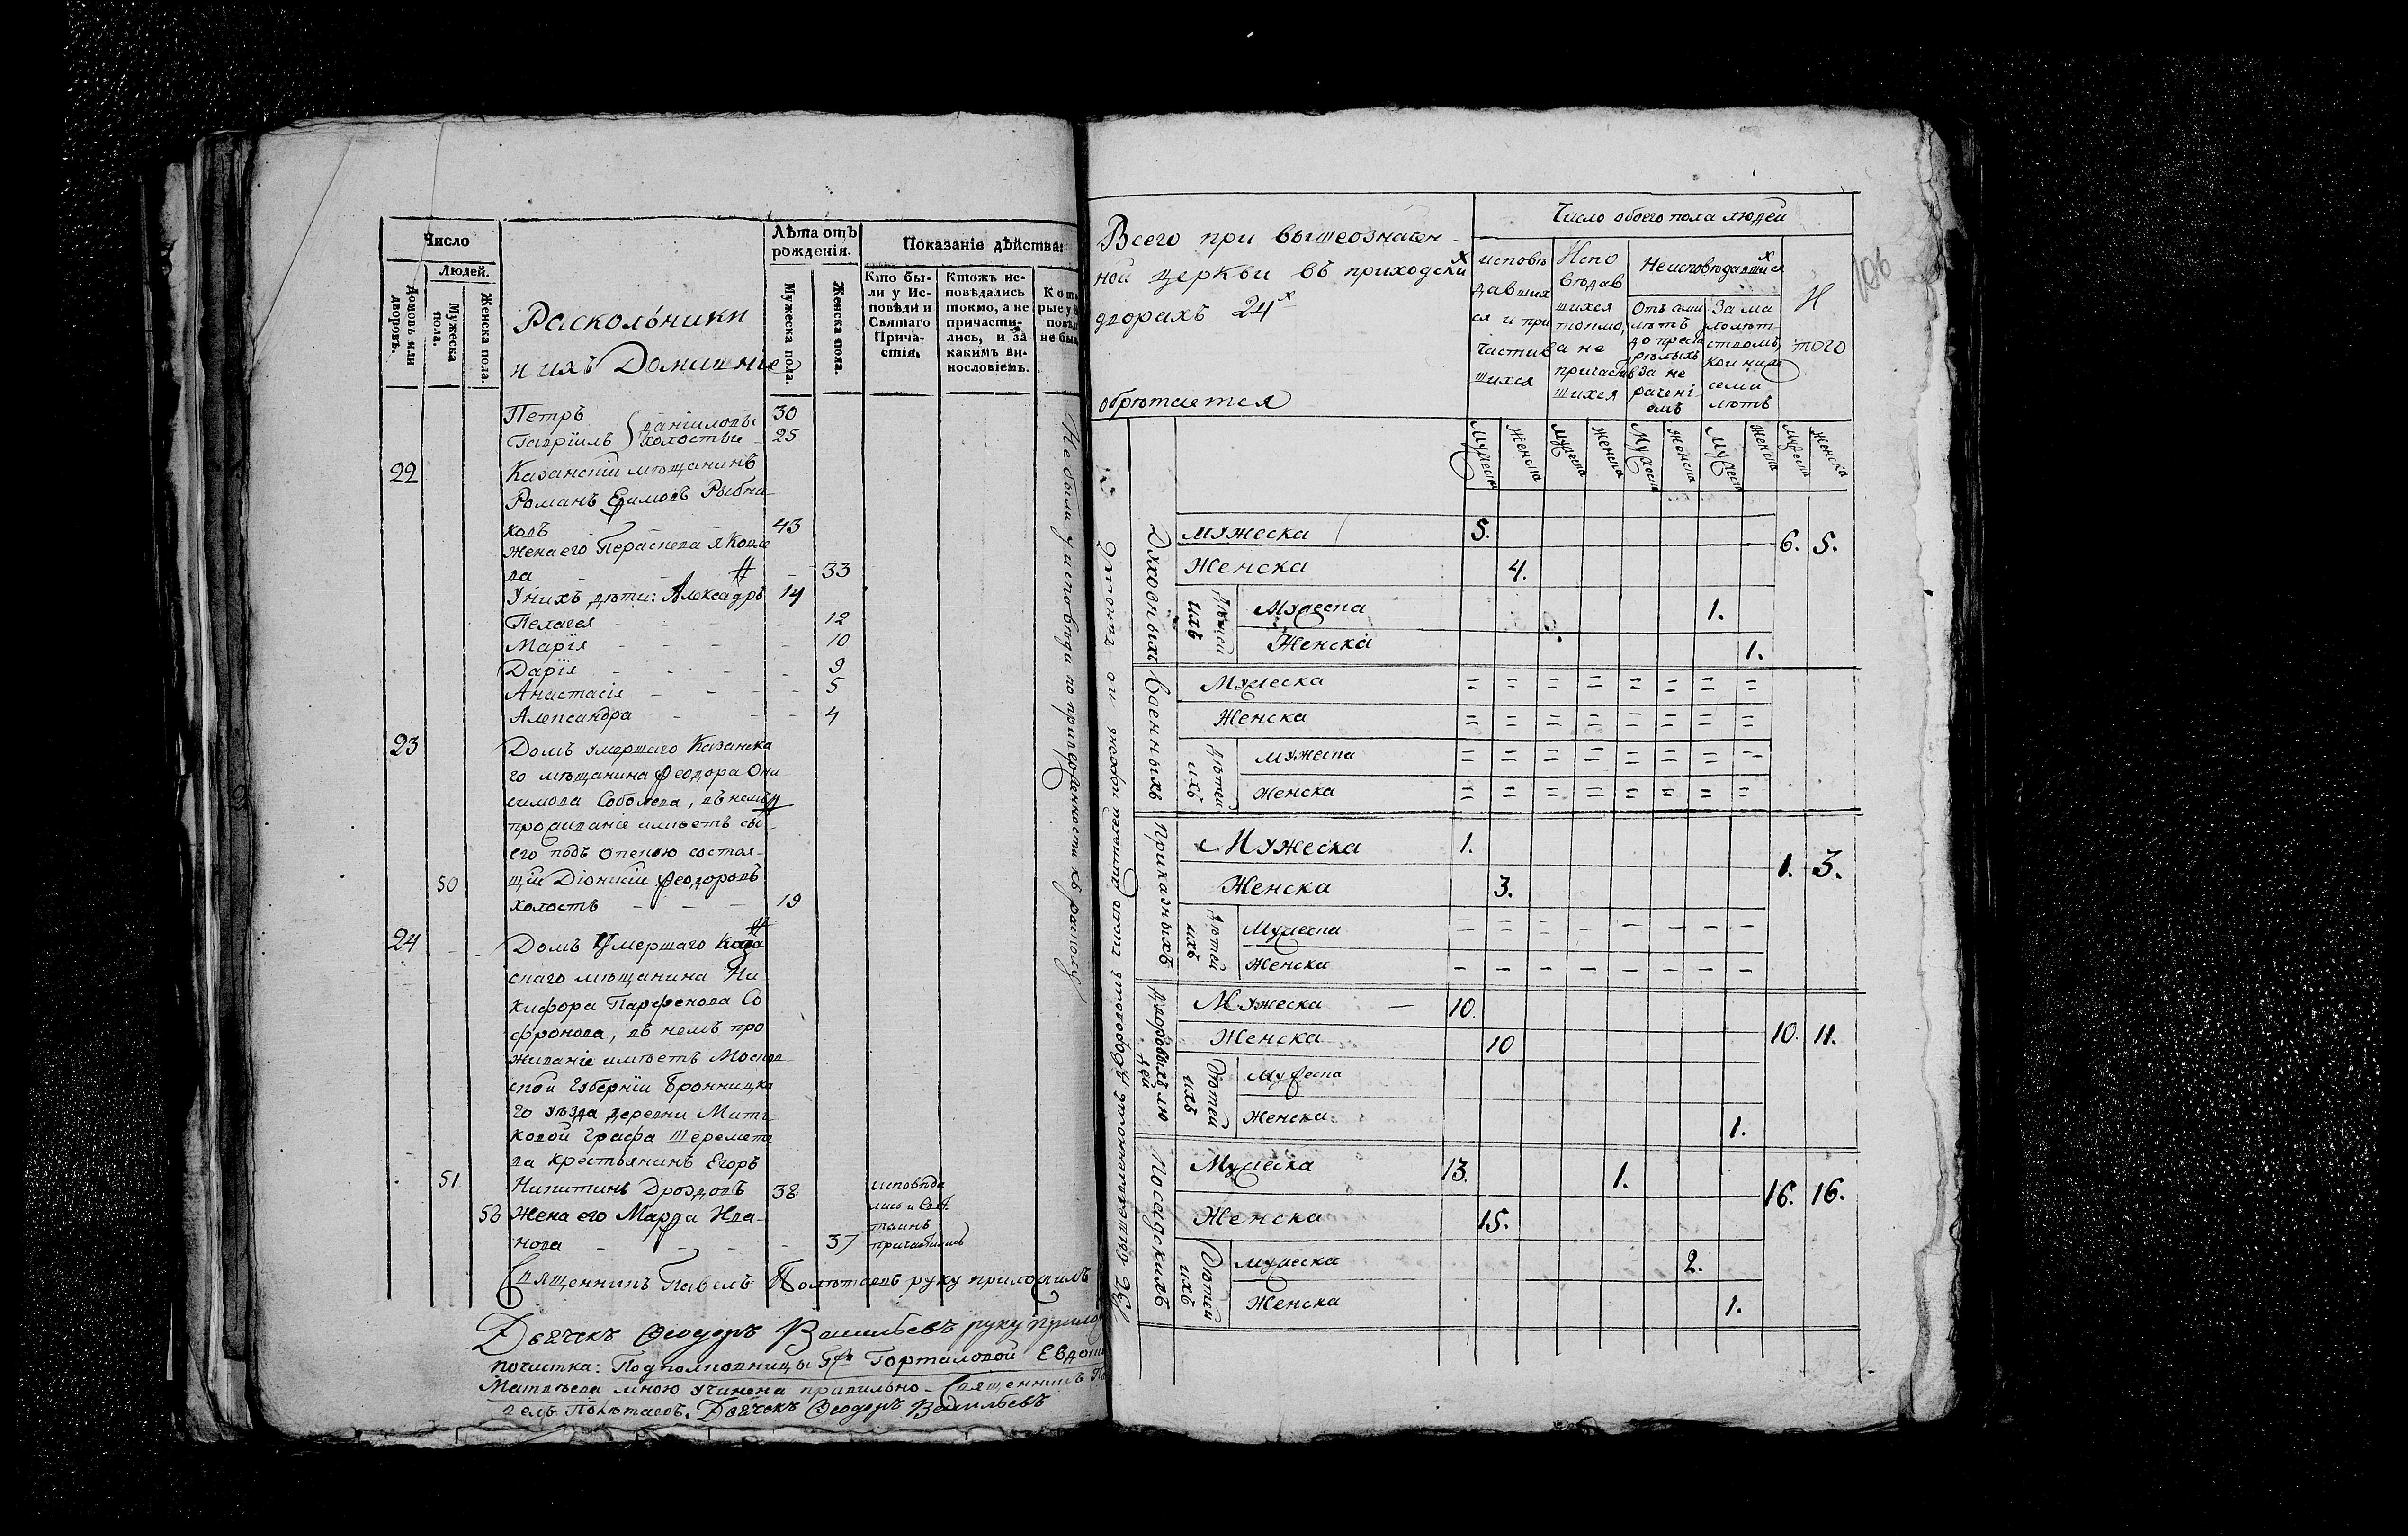 Число
Людей.
Домовъ или дворовъ.
Мужеска пола.
Женска пола.
Раскольники
и ихъ Домашніе
Лѣта отъ рожденія.
Мужеска пола.
Женска пола.
Показаніе дѣйства:
Кто бы-
ли у Ис-
повѣди и
Святаго
Прича-
стія.
Ктожъ ис-
повѣдались
токмо, а не
причасти-
лись, и за
какимъ ви-
нословіемъ.
Петръ 30
Гавріилъ } Даніиловы холостые 25
22 Казанскій мѣщанинъ
Романъ Ефимовъ Рыбни-
ковъ 43
Жена его Параскева Яковле
ва 33
У нихъ дѣти: Алексадръ 14
Пелагея 12
Марія 10
Дарія 9
Анастасія 5
Александра 4
23 Домъ умершаго Казанска
го мѣщанина Феодора Они
симова Соболева, въ немъ
проживаніе имѣетъ сы
его подъ опекою состоя-
50 щій Діонисій Феодоровъ
холостъ 19
24 Домъ Умершаго Каза
скаго мѣщанина Ни
кифора Парфенова Со
фронова, въ немъ про
живаніе имѣетъ Москов
ской Губерніи Бронницка
го уѣзда деревни Мить
ковой Графа Шеремете
ва крестьянинъ Егоръ
51 Никитинъ Дроздовъ 38
Жена его Марфа Ива-
нова 37
исповѣда
лись и Свят.
таинъ
причастились
Не были у исповѣди по приверженности къ расколу
Священникъ Павелъ Полѣтаевъ руку приложилъ
Дьячекъ Феодоръ Васильевъ руку прило
почистка: Подполковницы Горталовой Евдоки
Матвѣева мною учинена правильно - Священникъ Па
велъ Полѣтаевъ. Дьячекъ Феодоръ Васильевъ
106
Всего при вышеозначен-
ной церкви въ приходскихъ
дворахъ 24х
обрѣтается
Число обоего пола людей
исповѣ
давших
ся и при
частив
шихся
Испо
вѣдав
шихся
токмо,
а не
причастив
шихся
Неисповѣдавшихся
Отъ семи
лѣтъ
до прест
рѣлыхъ
за не
раченi-
емъ
За ма
лолѣт-
ствомъ,
кои ниже
семи
лѣтъ
И
того
Мужеска Женска Мужеска Женска Мужеска Женска Мужеска Женска Мужеска Женска
Духовныхъ
Мужеска 5. 6. 5.
Женска 4.
Дѣтей ихъ
Мужеска 1.
Женска 1.
Военныхъ
Мужеска = = = = = = = =
Женска = = = = = = = =
Дѣтей ихъ
Мужеска = = = = = = = =
Женска = = = = = = = =
Приказныхъ
Мужеска 1. 1. 3.
Женска 3.
Дѣтей ихъ
Мужеска - - - - - - - -
Женска - - - - - - - -
Дворовыхъ людей
Мужеска - 10. 10. 11.
Женска 10
Дѣтей ихъ
Мужеска
Женска 1.
Посадскихъ
Мужеска 13. 1. 16. 16.
Женска 15.
Дѣтей ихъ
Мужеска 2.
Женска 1.